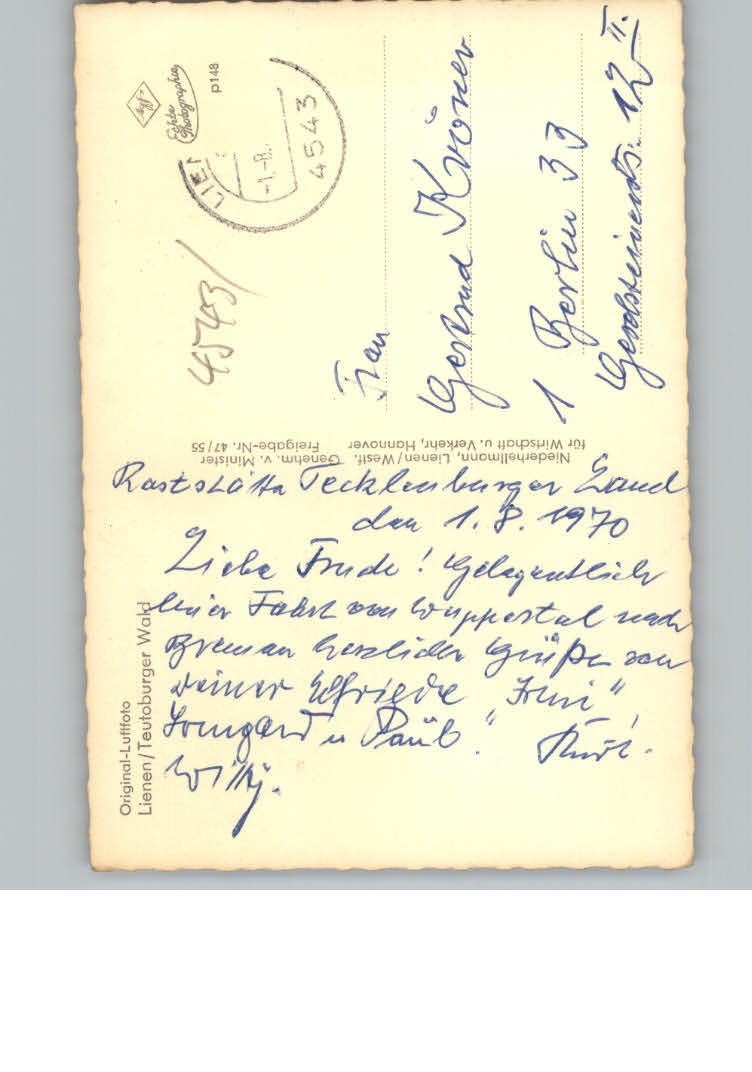 Original-Luftfoto
Lienen/Teutoburger Wald
Raststätte Tecklenburger Land
den 1. 8. 1970
Liebe Trude! Gelegentlich
einer Fahrt von Wuppertal nach
Bremen herzliche Grüße von
Deiner Elfriede
Irmgard u Paul.
Willy. Kurt.
Niederhellmann, Lienen/Westf. Genehm. v. Minister
für Wirtschaft u. Verkehr, Hannover Freigabe-Nr. 47/55
Agfa
Echte
Photographie
p148
LIEN
-1.-8.
4543
4543/
Frau
Gertrud Kröner
1 Berlin 33
12 II.